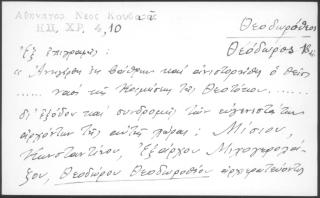 Ἀθηναγορ. Νέος Κουβαρᾶς
ΗΠ, ΧΡ. 4, 10
Θεοδωρόθεος
Θεόδωρος
Ἐξ ἐπιγραφῆς:
« Ἀνηγέρθη ἐκ βάθρων καὶ ἀνιστορήθη ὁ θεῖος
..... ναὸς τῆς Κοιμήσεως τῆς Θεοτόκου.....
δι' ἐξόδου καὶ συνδρομῆς τῶν εὐγενεστάτων
ἀρχόντων τῆς αὐτῆς χώρας: Μίσιου,
Κωνσταντίνου, Ἐξάρχου
ξου, Θεοδώρου Θεοδωροθέου ἀρχιερατεύοντος